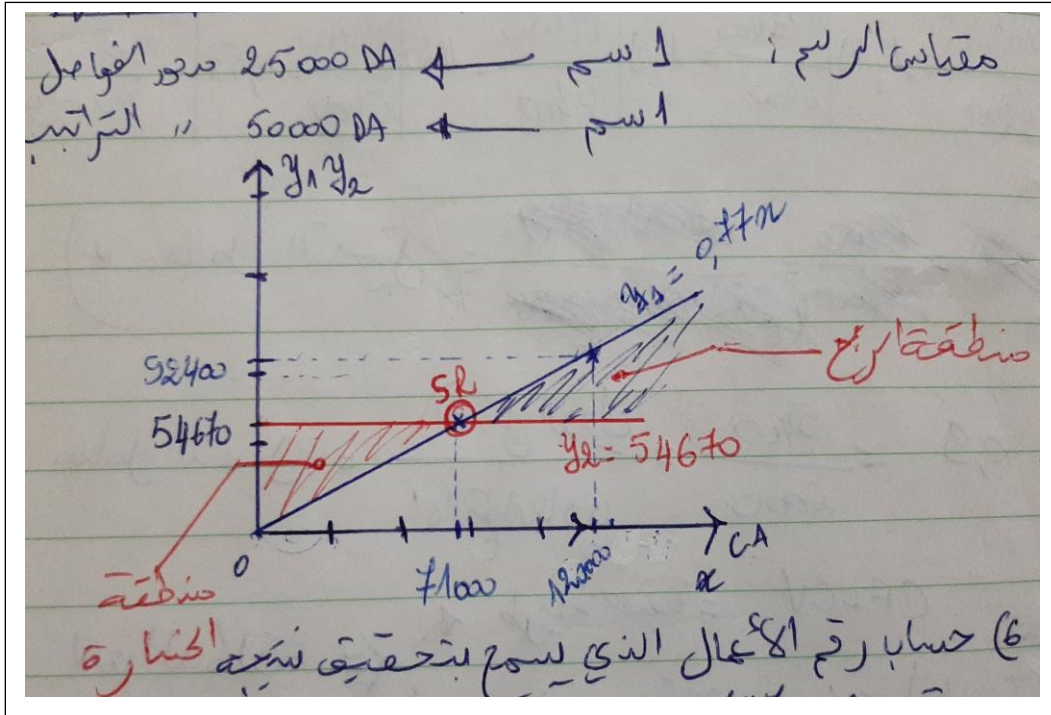 مقياس الرسم : 1 سم ← 25000 DA محور الفواصل
1 سم ← 50000 DA " التراتيب
y₁ y₂
y₁ = 0,77x
92400
SR
منطقة الربح
54670
y₂ = 54670
0
71000
120000
CA
x
منطقة
الخسارة
6) حساب رقم الأعمال الذي يسمح بتحقيق نتيجة